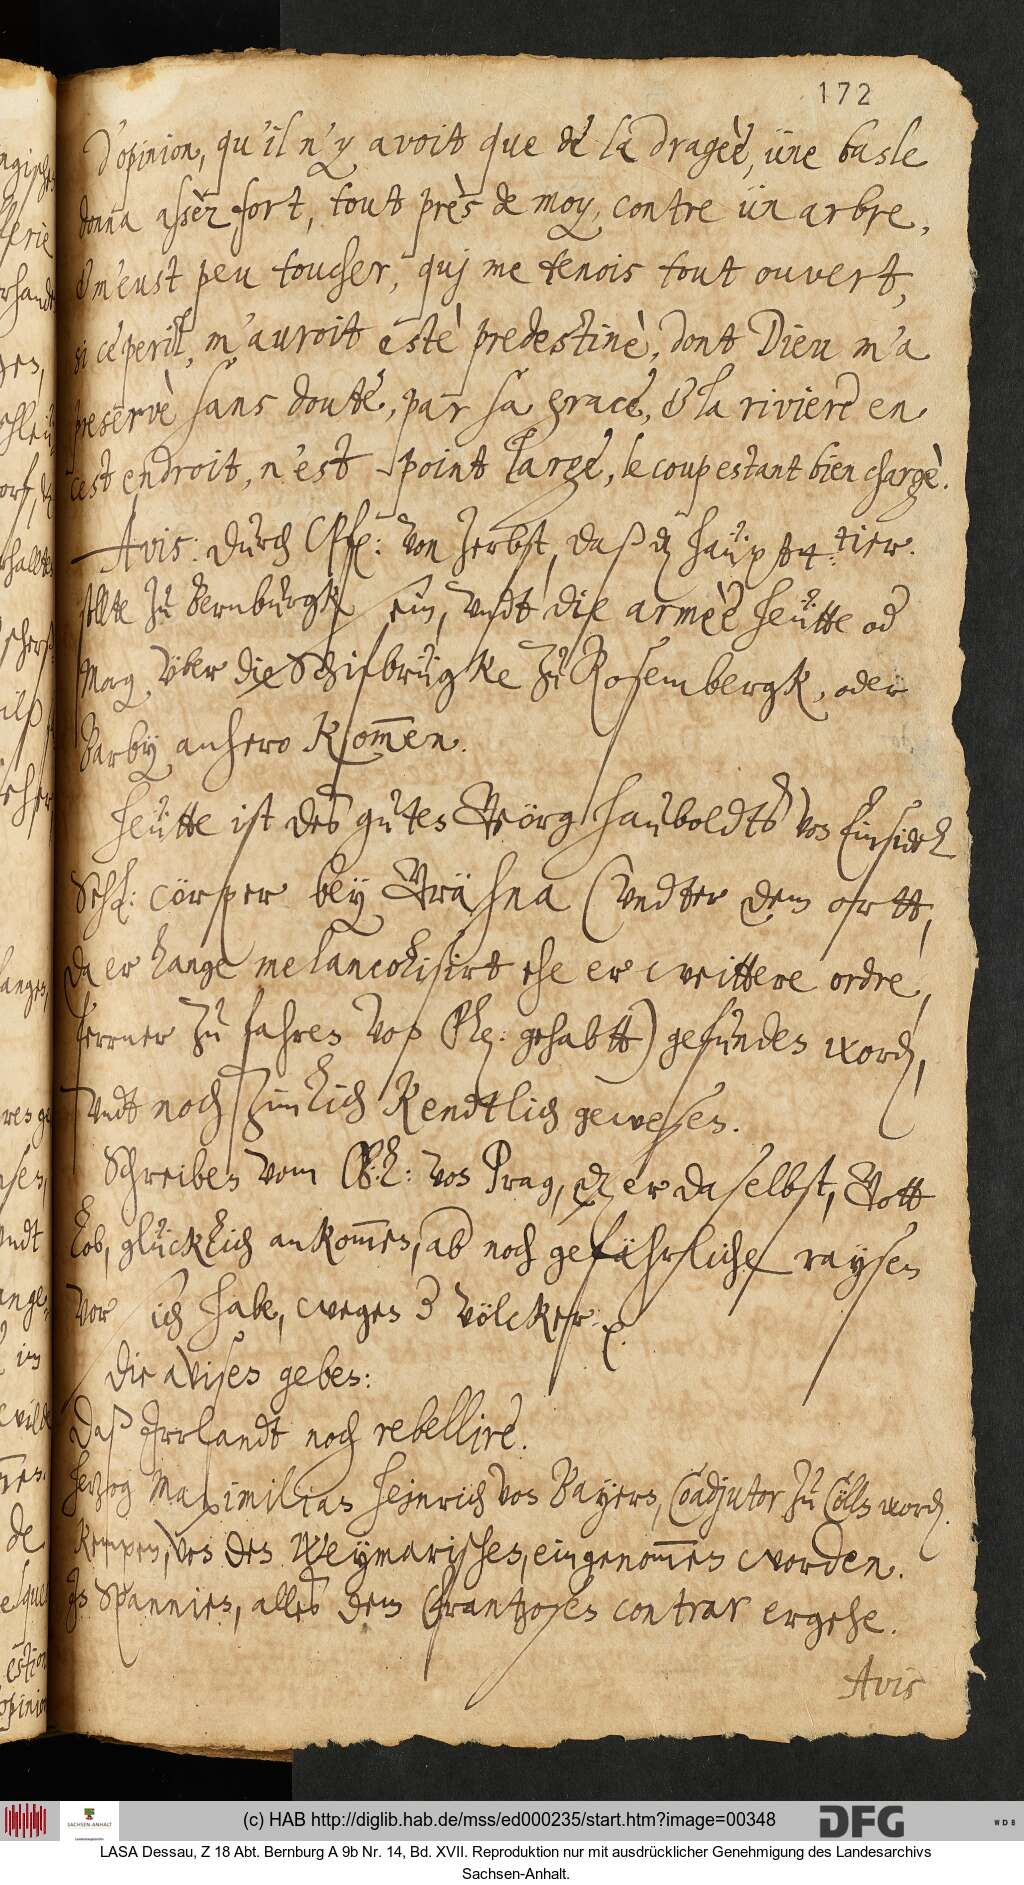 172
D'opinion, qu'il n'y avoit que de la Drageè, üne basle
donna assèz fort, tout près de moy, contre ün arbre,
& m'eust peu toucher, quj me tenois tout ouvert,
si ce peril, m'auroit estè predestinè, dont Dieu m'a
preservè sans doute, par sa grace, & la riviere en
cest endroit, n'est point large, le coup estant bien chargè.
Avis: durch von Zerbst, daß haüpt quartier
sollte zu Bernburgk sein, vndt die armèe heütte od
Morg vber die Schifbrügke zu Rosembergk, oder
Barby anhero kommen.
Heütte ist des guten Geörg Hauboldts von Einsidel
Sehl: cörper bey Gröhna (vndter dem ortt,
da er lange melancolisirt ehe er weittere ordre,
ferrner zu fahren von gehabtt) gefunden word,
vndt noch zimlich kendtlich gewesen.
Schreiben vom von Prag, er daselbst, Gott
lob, glücklich ankommen, ab noch gefährliche raysen
vor sich habe, wegen 3 völcker:
Die avisen geben:
Daß Irrlandt noch rebellire.
Herzog Maximilian Heinrich von Bayern, Coadjutor zu Cölln word.
Kempen, von den Weymarischen, eingenommen worden.
In Spannien, alles dem Frantzosen contrar ergehe.
Avis
(c) HAB http://diglib.hab.de/mss/ed000235/start.htm?image=00348
SACHSEN-ANHALT
DFG
WDB
LASA Dessau, Z 18 Abt. Bernburg A 9b Nr. 14, Bd. XVII. Reproduktion nur mit ausdrücklicher Genehmigung des Landesarchivs
Sachsen-Anhalt.